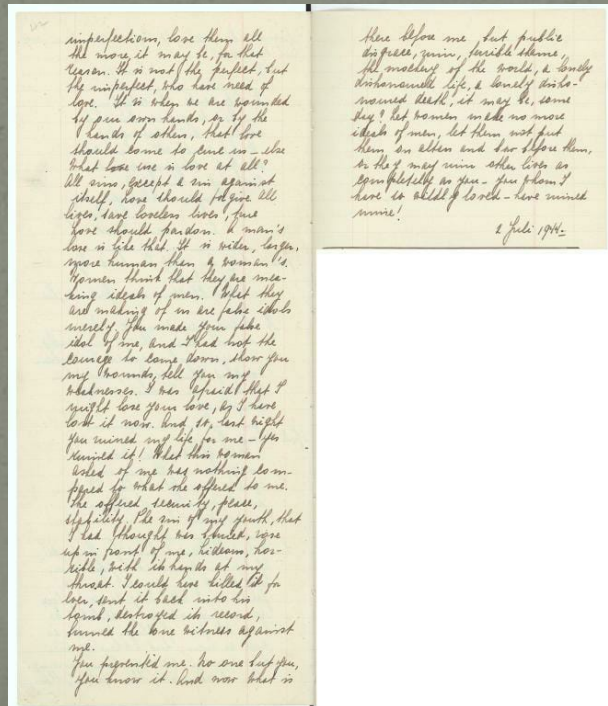 imperfections, love them all
the more, it may be, for that
reason. It is not the perfect, but
the imperfect, who have need of
love. It is when we are wounded
by our own hands, or by the
hands of others, that love
should come to cure us – else
what use is love at all?
All sins, except a sin against
itself, love should forgive. All
lives, save loveless lives, true
love should pardon. A man's
love is like that. It is wider, larger,
more human than a woman's.
Women think that they are ma-
king ideals of men. What they
are making of us are false idols
merely. You made your false
idol of me, and I had not the
courage to come down, show you
my wounds, tell you my
weaknesses. I was afraid that I
might lose your love, as I have
lost it now. And, so, last night
you ruined my life for me – yes
ruined it! What this woman
asked of me was nothing com-
pared to what she offered to me.
She offered security, peace,
stability. The sin of my youth, that
I had thought was buried, rose
up in front of me, hideous, hor-
rible, with its hands at my
throat. I could have killed it for
ever, sent it back into his
tomb, destroyed its record,
burned the one witness against
me.
You prevented me. No one but you,
you know it. And now what is
there before me, but public
disgrace, ruin, terrible shame,
the mockery of the world, a lonely
dishonoured life, a lonely disho-
noured death, it may be, some
day? Let women make no more
ideals of men, let them not put
them on alters and bow before them,
or they may ruin other lives as
completely as you – you whom I
have so wildly loved – have ruined
mine!
2 Juli 1944 –